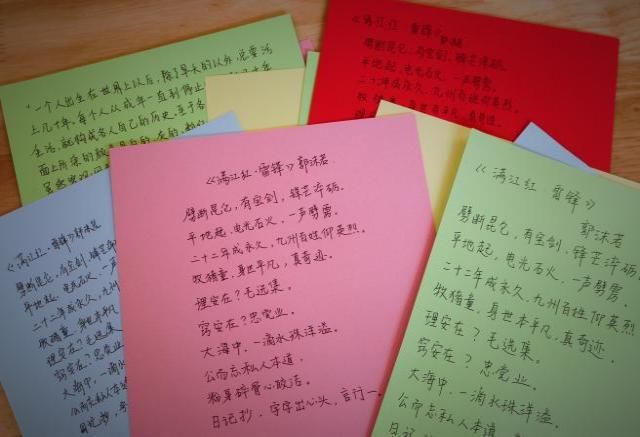 "一个人出生在世界上以后，除了早夭的以外，总要活
上几十年。每个人从成年一直到停止
生活，就构成各人自己的历史。至于各
《满江红 雷锋》郭沫若
劈断昆仑，有宝剑，锋芒淬砺。
平地起，电光石火，一声劈雳。
二十二年成永久，九州百姓仰英烈。
牧猪童，身世本平凡，真奇迹。
《满江红·雷锋》郭沫若
劈断昆仑，有宝剑，锋芒
平地起，电光石火，一声
二十二年成永久，九州
牧猪童，身世本平凡
理安在？毛选集。
窍安在？忠党业。
大海中，一滴水
公而忘私人本道
日记抄，字
《满江红·雷锋》郭沫若
劈断昆仑，有宝剑，锋芒淬砺。
平地起，电光石火，一声劈雳。
二十二年成永久，九州百姓仰英烈。
牧猪童，身世本平凡，真奇迹。
理安在？毛选集。
窍安在？忠党业。
大海中，一滴水珠洋溢。
公而忘私人本道，
粉身碎骨心皎洁。
日记抄，字字出心头，言行一。
《满江红 雷锋》
郭沫若
劈断昆仑，有宝剑，锋芒淬砺
平地起，电光石火，一声劈雳。
二十二年成永久，九州百姓仰英烈
牧猪童，身世本平凡，真奇迹。
理安在？毛选集。
窍安在？忠党业。
大海中，一滴水珠洋溢。
公而忘私人本道
日记抄